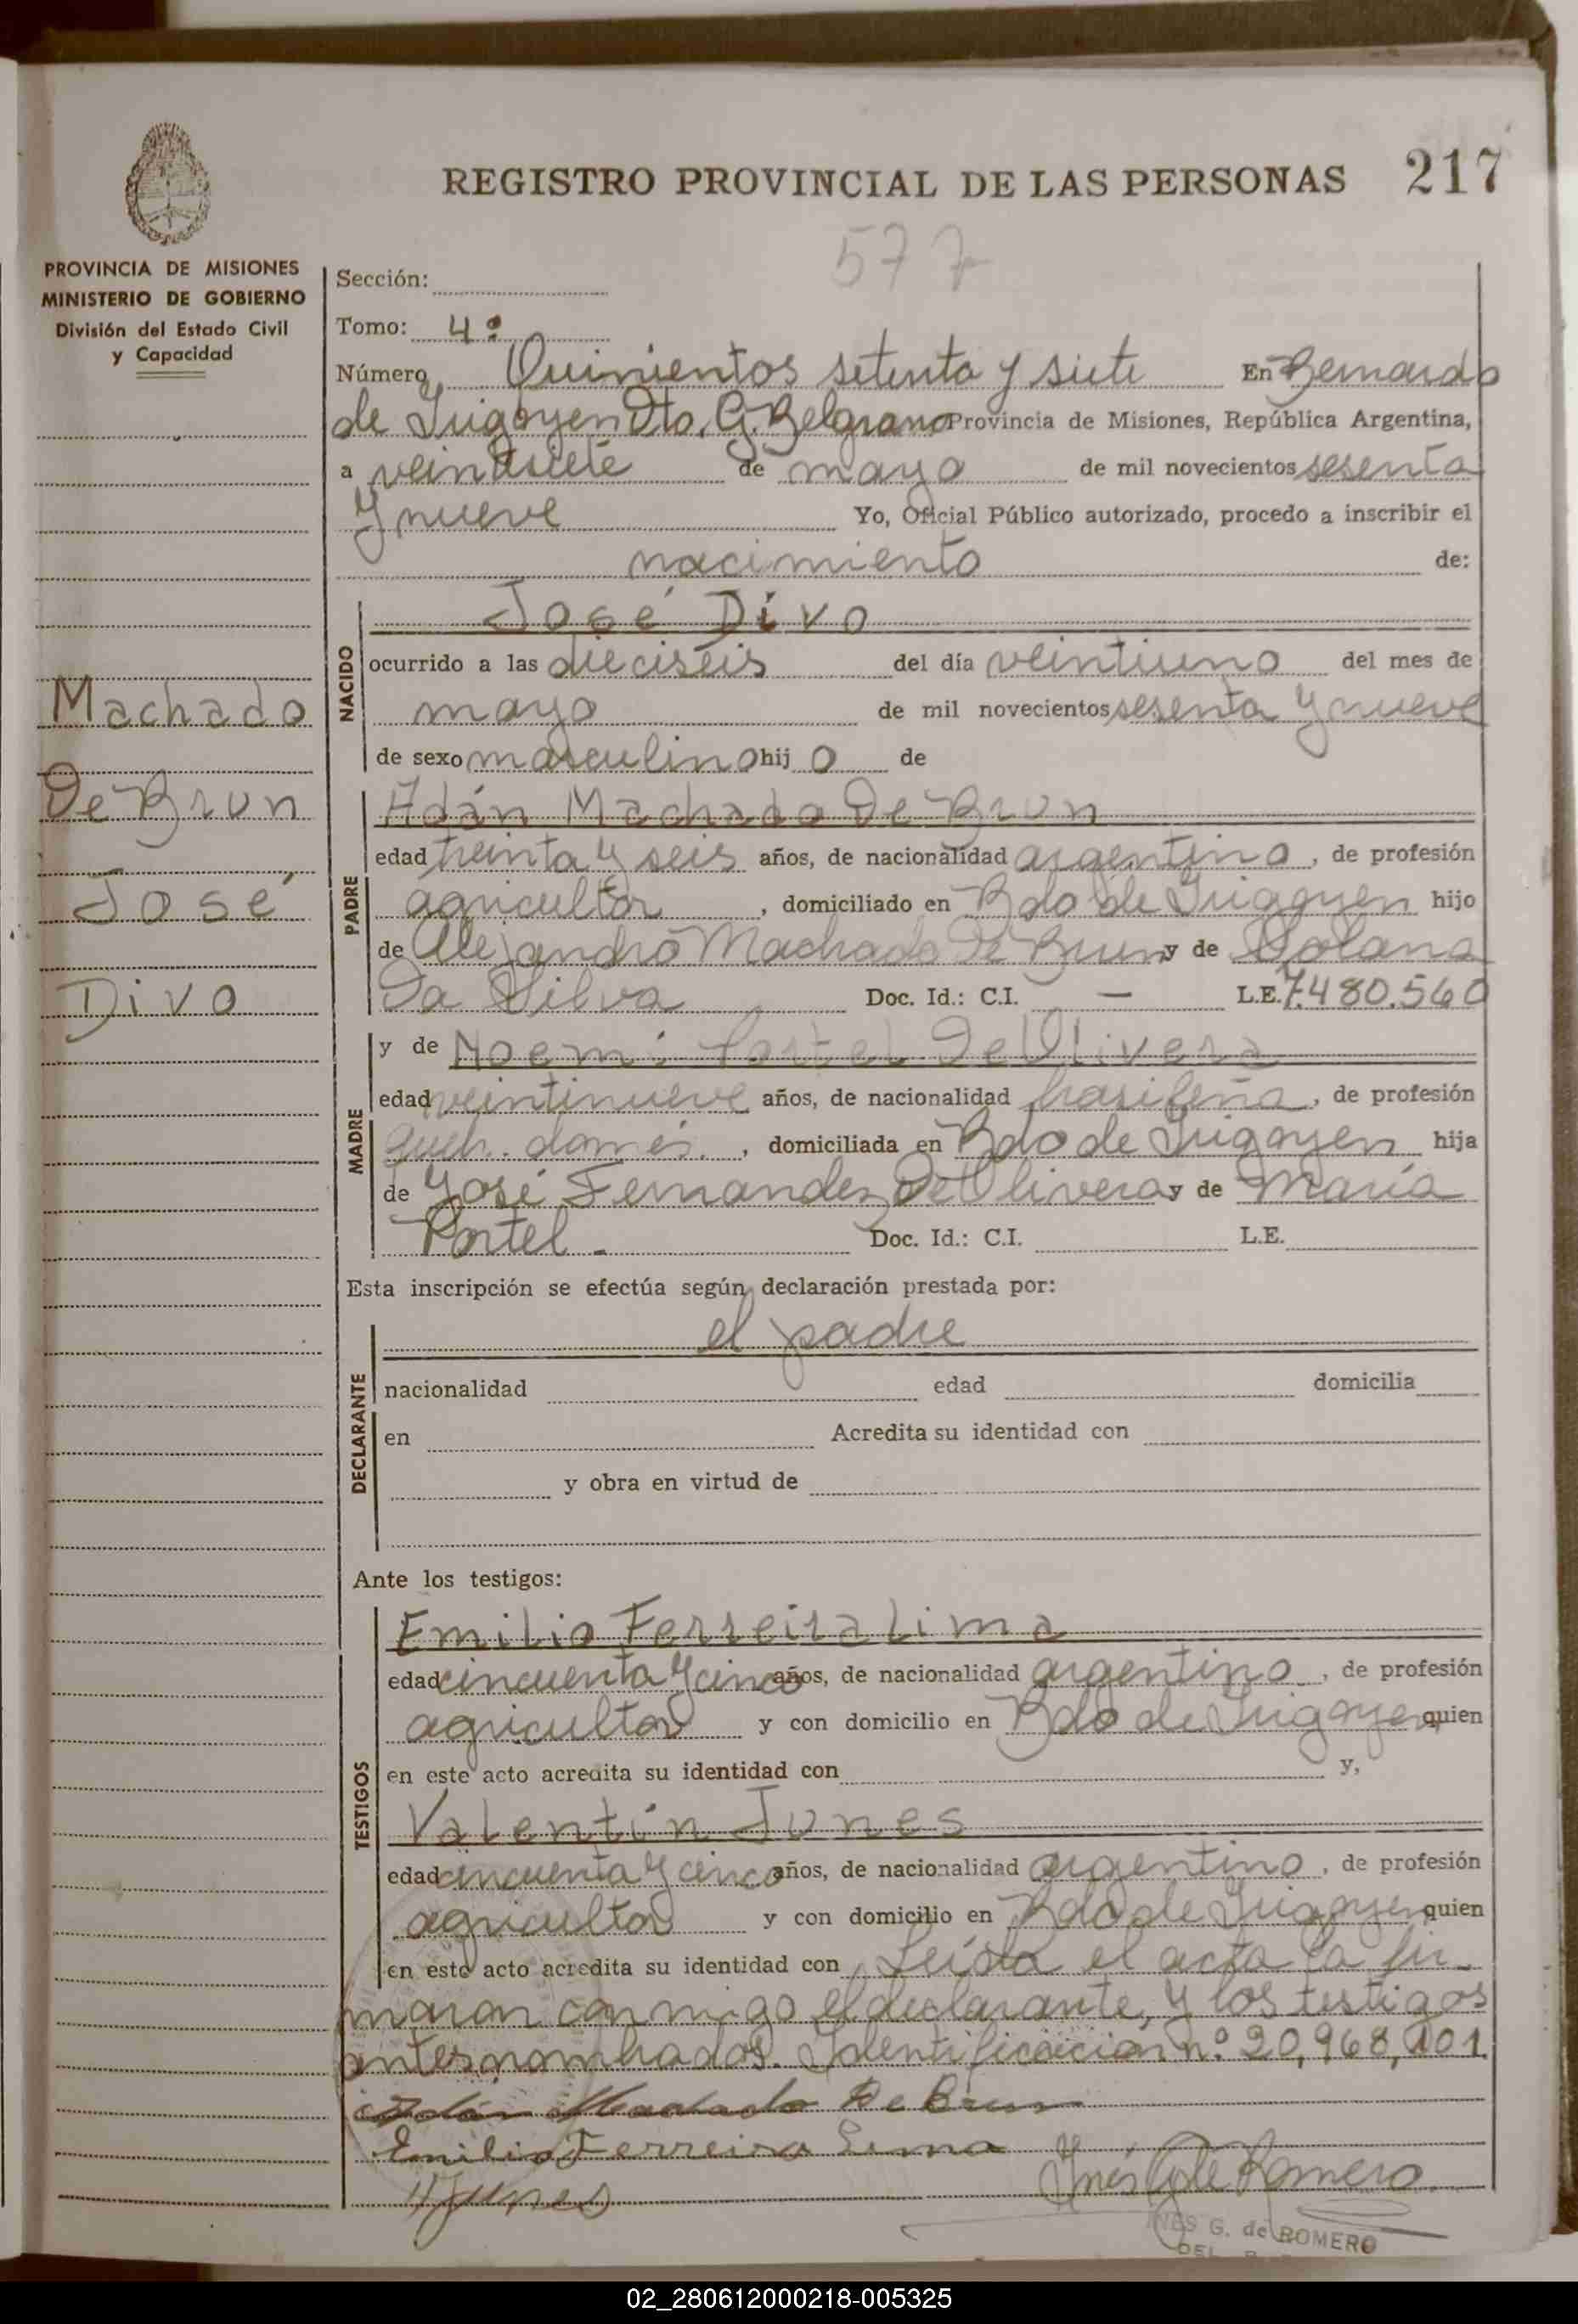 REGISTRO PROVINCIAL DE LAS PERSONAS 217
577
PROVINCIA DE MISIONES
MINISTERIO DE GOBIERNO
División del Estado Civil
y Capacidad
Machado
De Brun
José
Divo
Sección:
Tomo: 4º
Número Quinientos setenta y siete En Bernardo
de Irigoyen Dto. G. Belgrano Provincia de Misiones, República Argentina,
a veintisiete de mayo de mil novecientos sesenta
y nueve Yo, Oficial Público autorizado, procedo a inscribir el
nacimiento de:
NACIDO
José Divo
ocurrido a las dieciséis del día veintiuno del mes de
mayo de mil novecientos sesenta y nueve
de sexo masculino hij o de
PADRE
Adán Machado De Brun
edad treinta y seis años, de nacionalidad argentino, de profesión
agricultor, domiciliado en Bdo de Irigoyen hijo
de Alejandro Machado De Brun y de Solana
Da Silva Doc. Id.: C.I. — L.E. 7.480.560
MADRE
y de Noemi Portel De Olivera
edad veintinueve años, de nacionalidad brasileña, de profesión
queh. domés., domiciliada en Bdo de Irigoyen hija
de José Fernandez De Olivera y de María
Portel. Doc. Id.: C.I. L.E.
Esta inscripción se efectúa según declaración prestada por:
el padre
DECLARANTE
nacionalidad edad domicilia
en Acredita su identidad con
y obra en virtud de
Ante los testigos:
TESTIGOS
Emilio Ferreira Lima
edad cincuenta y cinco años, de nacionalidad argentino, de profesión
agricultor y con domicilio en Bdo de Irigoyen quien
en este acto acredita su identidad con y,
Valentín Junes
edad cincuenta y cinco años, de nacionalidad argentino, de profesión
agricultor y con domicilio en Bdo de Irigoyen quien
en este acto acredita su identidad con Leída el acta la fir-
maron conmigo el declarante, y los testigos
antes nombrados. Identificación nº 20,968,101.
Adán Machado De Brun
Emilio Ferreira Lima
VJunes Inés G de Romero
INES G. de ROMERO
02_280612000218-005325